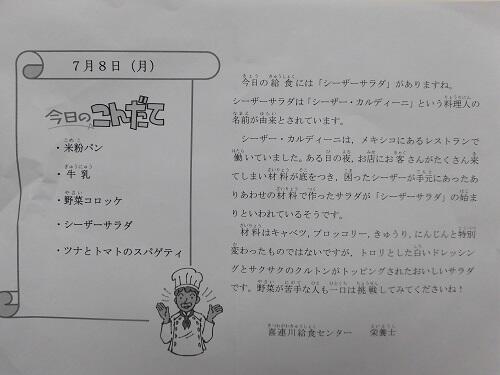 7月8日（月）
今日のこんだて
・米粉パン
・牛乳
・野菜コロッケ
・シーザーサラダ
・ツナとトマトのスパゲティ
今日の給食には「シーザーサラダ」がありますね。
シーザーサラダは「シーザー・カルディーニ」という料理人の
名前が由来とされています。
シーザー・カルディーニは，メキシコにあるレストランで
働いていました。ある日の夜，お店にお客さんがたくさん来
てしまい材料が底をつき，困ったシーザーが手元にあったあ
りあわせの材料で作ったサラダが「シーザーサラダ」の始ま
りといわれているそうです。
材料はキャベツ，ブロッコリー，きゅうり，にんじんと特別
変わったものではないですが，トロリとした白いドレッシン
グとサクサクのクルトンがトッピングされたおいしいサラダ
です。野菜が苦手な人も一口は挑戦してみてくださいね！
喜連川給食センター　栄養士